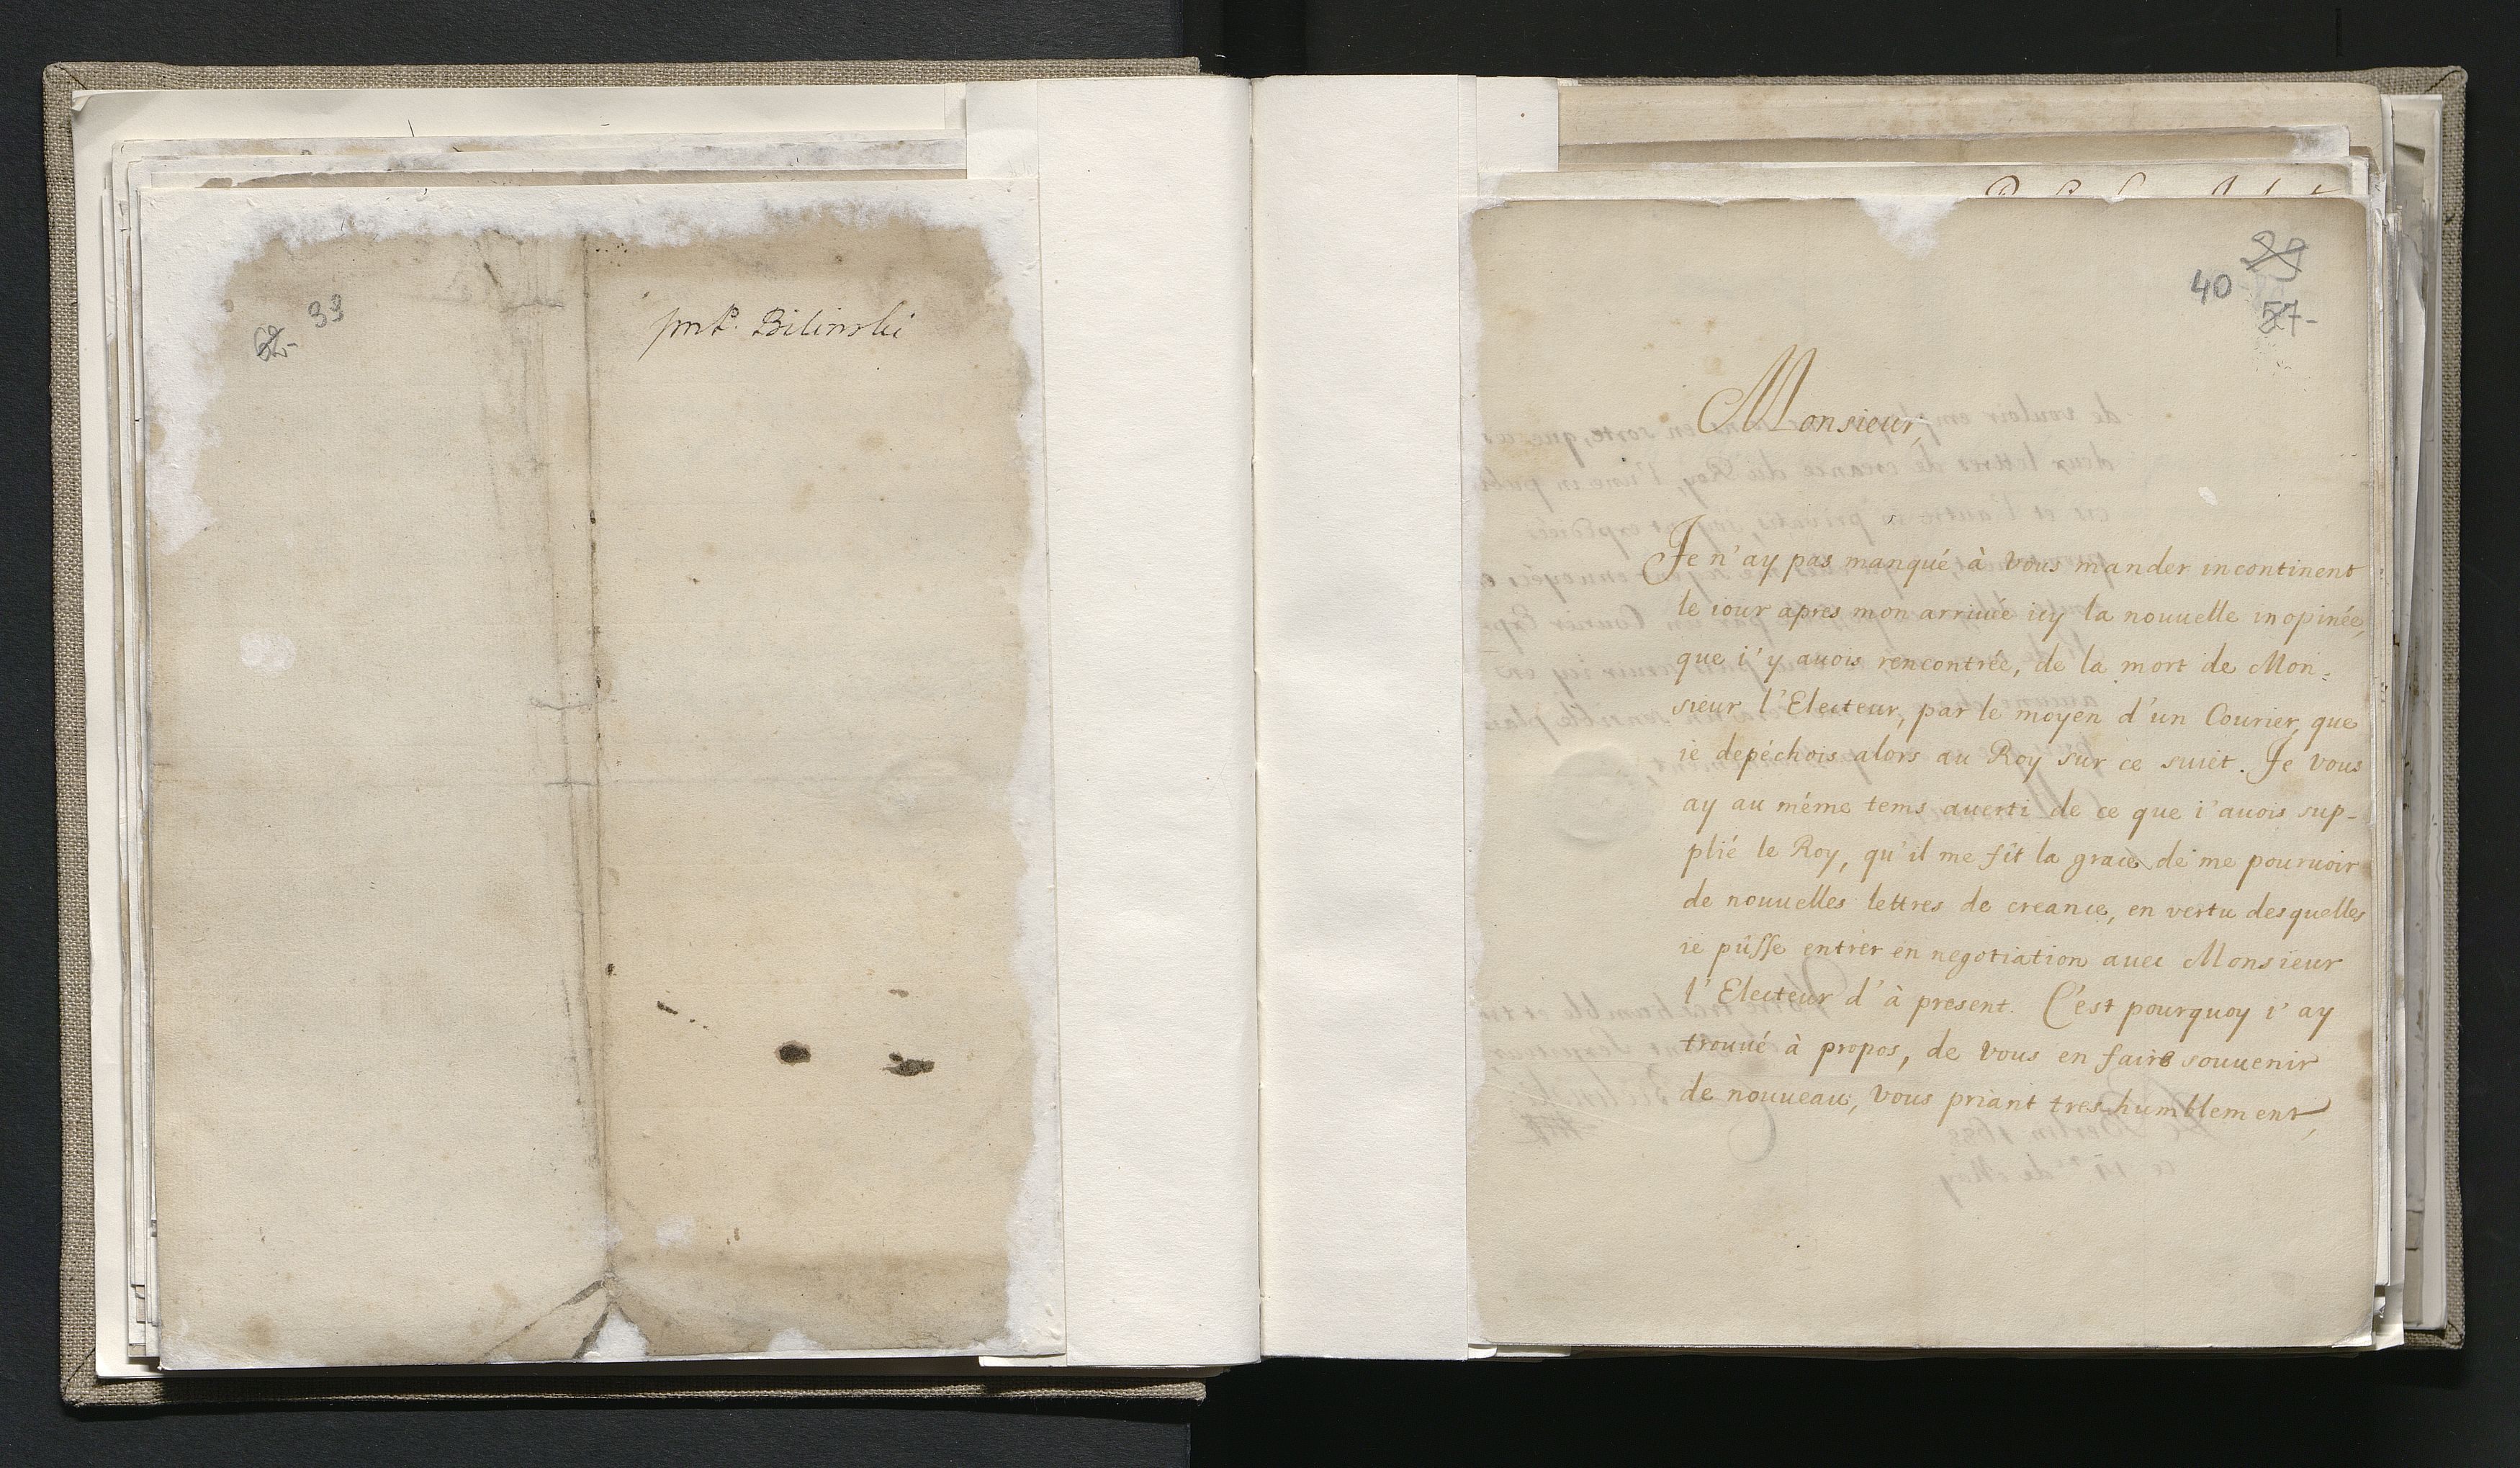 62- 39
Bilinski
39
40
57-
Monsieur,
Je n'ay pas manqué à vous mander incontinent
le iour apres mon arriuée icy la nouuelle inopinée,
que i'y auois rencontrée, de la mort de Mon-
sieur l'Electeur, par le moyen d'un Courier, que
ie depéchois alors au Roy sur ce suiet. Je vous
ay au méme tems auerti de ce que i'auois sup-
plié le Roy, qu'il me fît la grace de me pouruoir
de nouuelles lettres de creance, en vertu desquelles
ie pûsse entrer en negotiation auec Monsieur
l'Electeur d'à present. C'est pourquoy i'ay
trouué à propos, de vous en faire souuenir
de nouueau, vous priant tres-humblement,